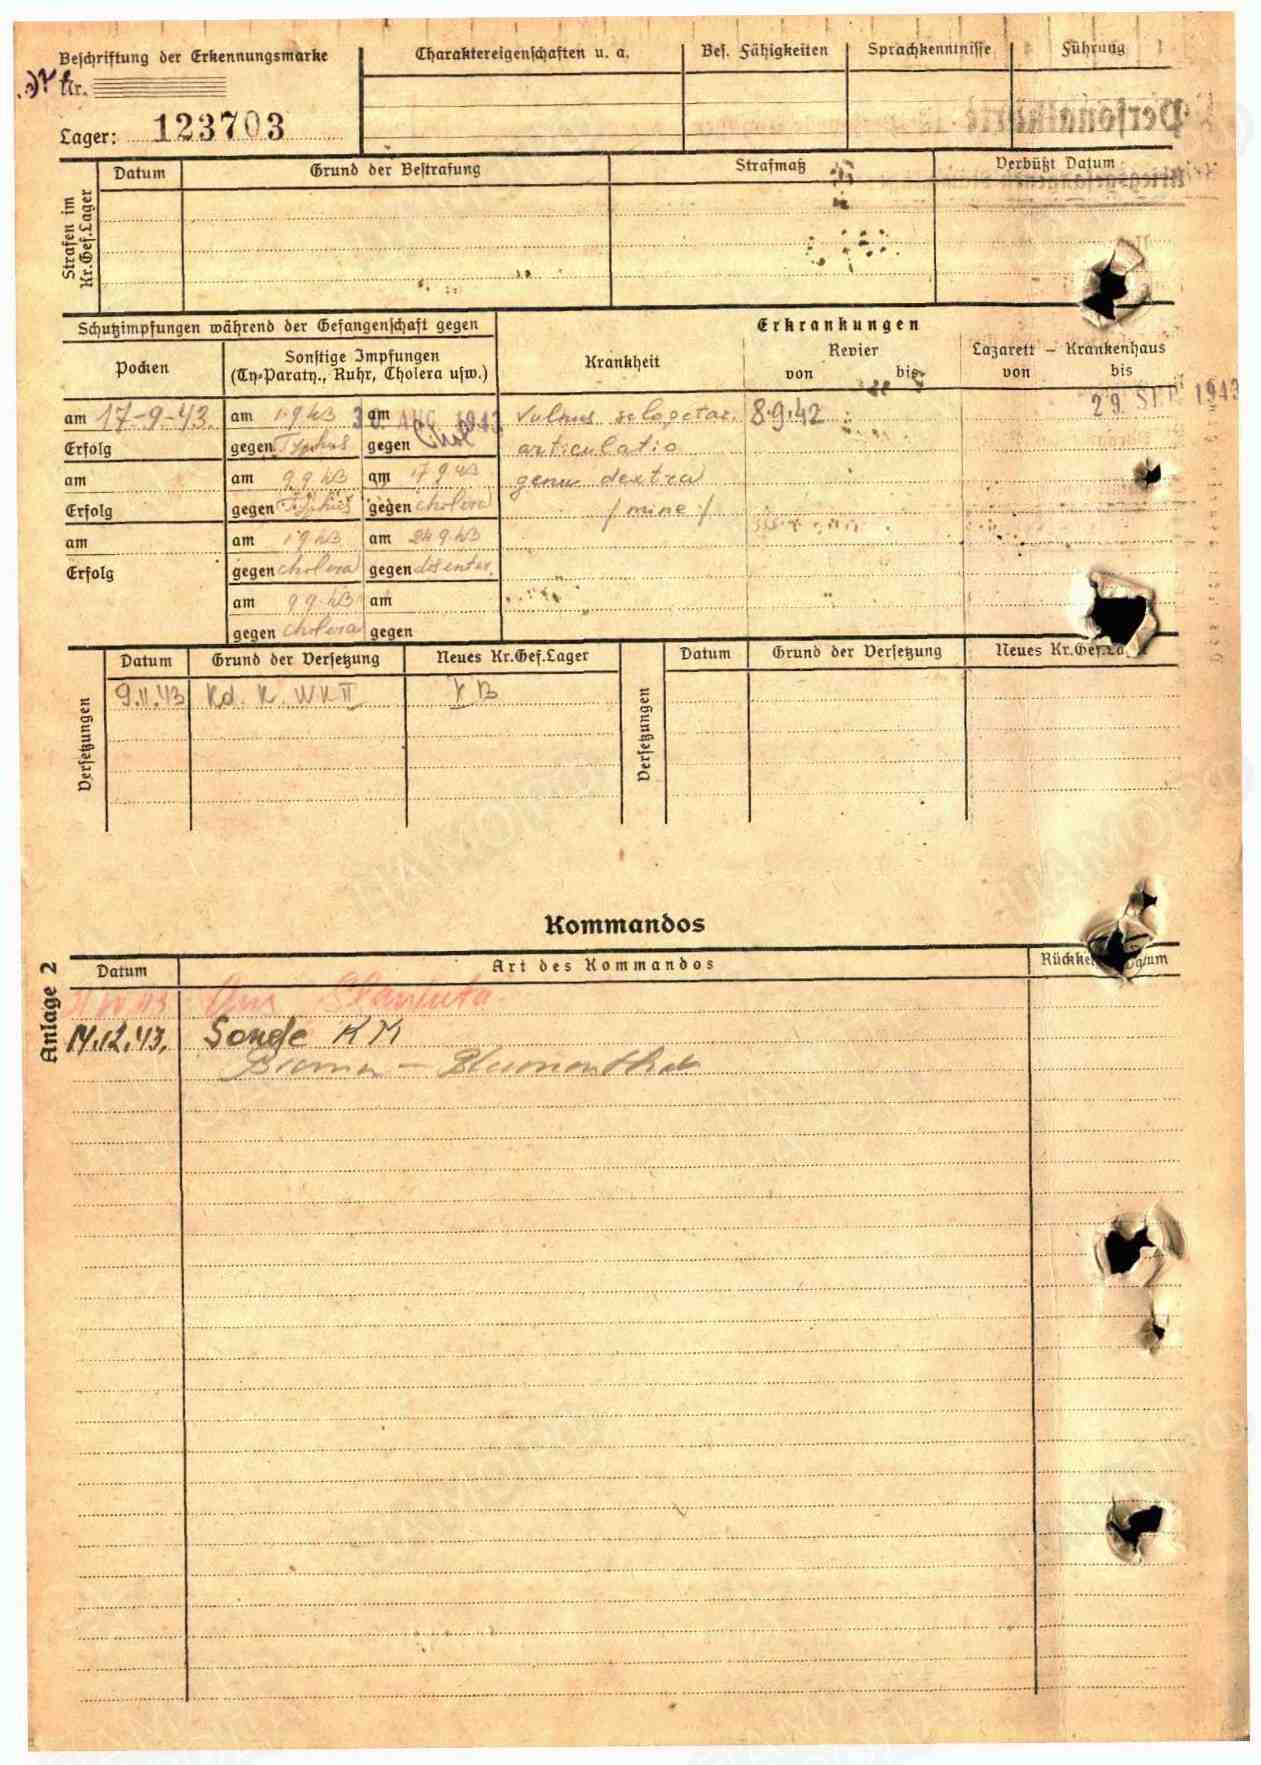 Beschriftung der Erkennungsmarke
Nr.
Lager: 123703
Charaktereigenschaften u. a.
Bes. Fähigkeiten
Sprachkenntnisse
Führung
Strafen im Kr.Gef.Lager
Datum
Grund der Bestrafung
Strafmaß
Verbüßt Datum
Schutzimpfungen während der Gefangenschaft gegen
Erkrankungen
Pocken
Sonstige Impfungen
(Ty-Paraty., Ruhr, Cholera usw.)
Krankheit
Revier
von bis
Lazarett – Krankenhaus
von bis
am 17-9-43. am 1.9.43 am 30. AUG. 1943 vulnus selopetar. 8.9.42 29. SEP. 1943
Erfolg gegen Typhus gegen Chol articulatio
am am 9.9.43 am 17.9.43 genu dextra
Erfolg gegen Typhus gegen cholera /mine/
am am 1.9.43 am 24.9.43
Erfolg gegen cholera gegen disenter.
am 9.9.43 am
gegen cholera gegen
Versetzungen
Datum Grund der Versetzung Neues Kr.Gef.Lager
9.11.43 Kd. K. WK II X B
Versetzungen
Datum Grund der Versetzung Neues Kr.Gef.Lager
Kommandos
Anlage 2
Datum Art des Kommandos Rückkehr Datum
Slawuta
14.12.43. Sonde KM
Bremen – Blumenthal